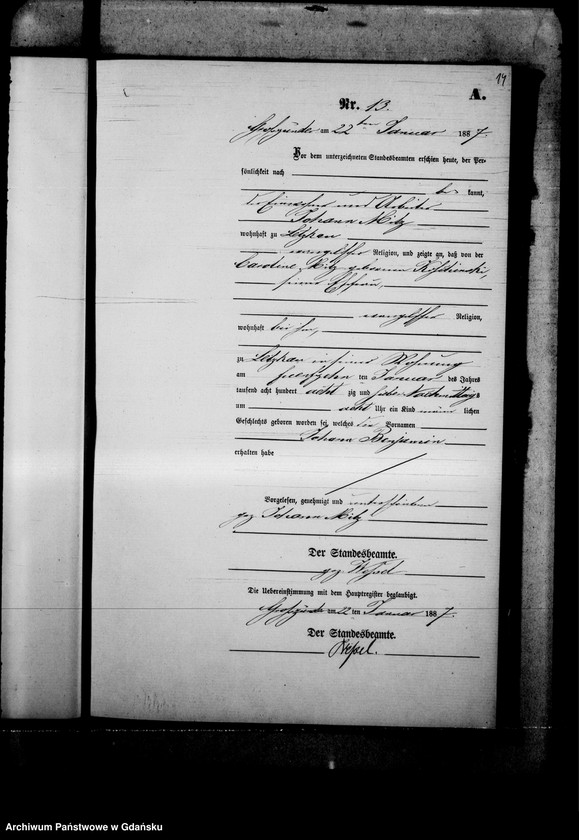 14
A.
Nr. 13.
am 22ten Januar 1887.
Vor dem unterzeichneten Standesbeamten erschien heute, der Per-
sönlichkeit nach
be kannt,
der Einwohner und Arbeiter
Johann Mitz
wohnhaft zu Letzkau
evangelischer Religion, und zeigte an, daß von der
Caroline Mitz geborenen
seiner Ehefrau,
evangelischer Religion,
wohnhaft bei ihm,
zu Letzkau in seiner Wohnung
am fünfzehnten ten Januar des Jahres
tausend acht hundert acht zig und sieben Nachmittags
um acht Uhr ein Kind männ lichen
Geschlechts geboren worden sei, welches die Vornamen
Johann Benjamin
erhalten habe
Vorgelesen, genehmigt und unterschrieben
gez. Johann Mitz
Der Standesbeamte.
gez. Wessel
Die Uebereinstimmung mit dem Hauptregister beglaubigt.
am 22 ten Januar 1887.
Der Standesbeamte.
Wessel.
Archiwum Państwowe w Gdańsku